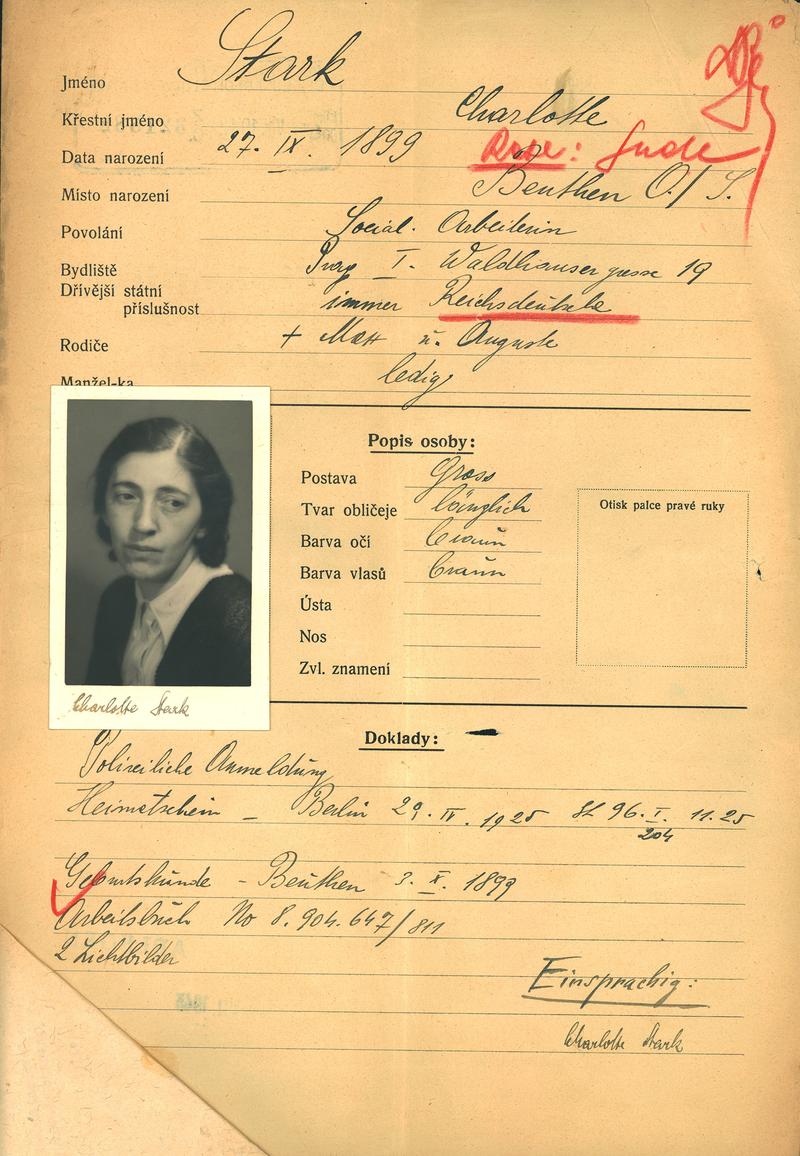 Jméno Stark
Křestní jméno Charlotte
Data narození 27. IX. 1899 Rasse: Jude
Místo narození Beuthen O./S.
Povolání Social. Arbeiterin
Bydliště Prag I. Waldhausergasse 19
Dřívější státní
příslušnost immer Reichsdeutsche
Rodiče + Max u. Auguste
Manžel-ka ledig
Popis osoby:
Postava Gross
Tvar obličeje länglich
Barva očí braun
Barva vlasů braun
Ústa
Nos
Zvl. znamení
Otisk palce pravé ruky
Charlotte Stark
Doklady:
Polizeiliche Anmeldung
Heimatschein – Berlin 29. IV. 1925 96. I. 11. 25
204
Geburtskunde – Beuthen 3. X. 1899
Arbeitsbuch No 8. 904. 647/811
2 Lichtbilder
Einsprachig:
Charlotte Stark